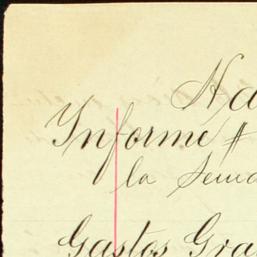 Ha
Informe #
la Sema
Gastos Gra